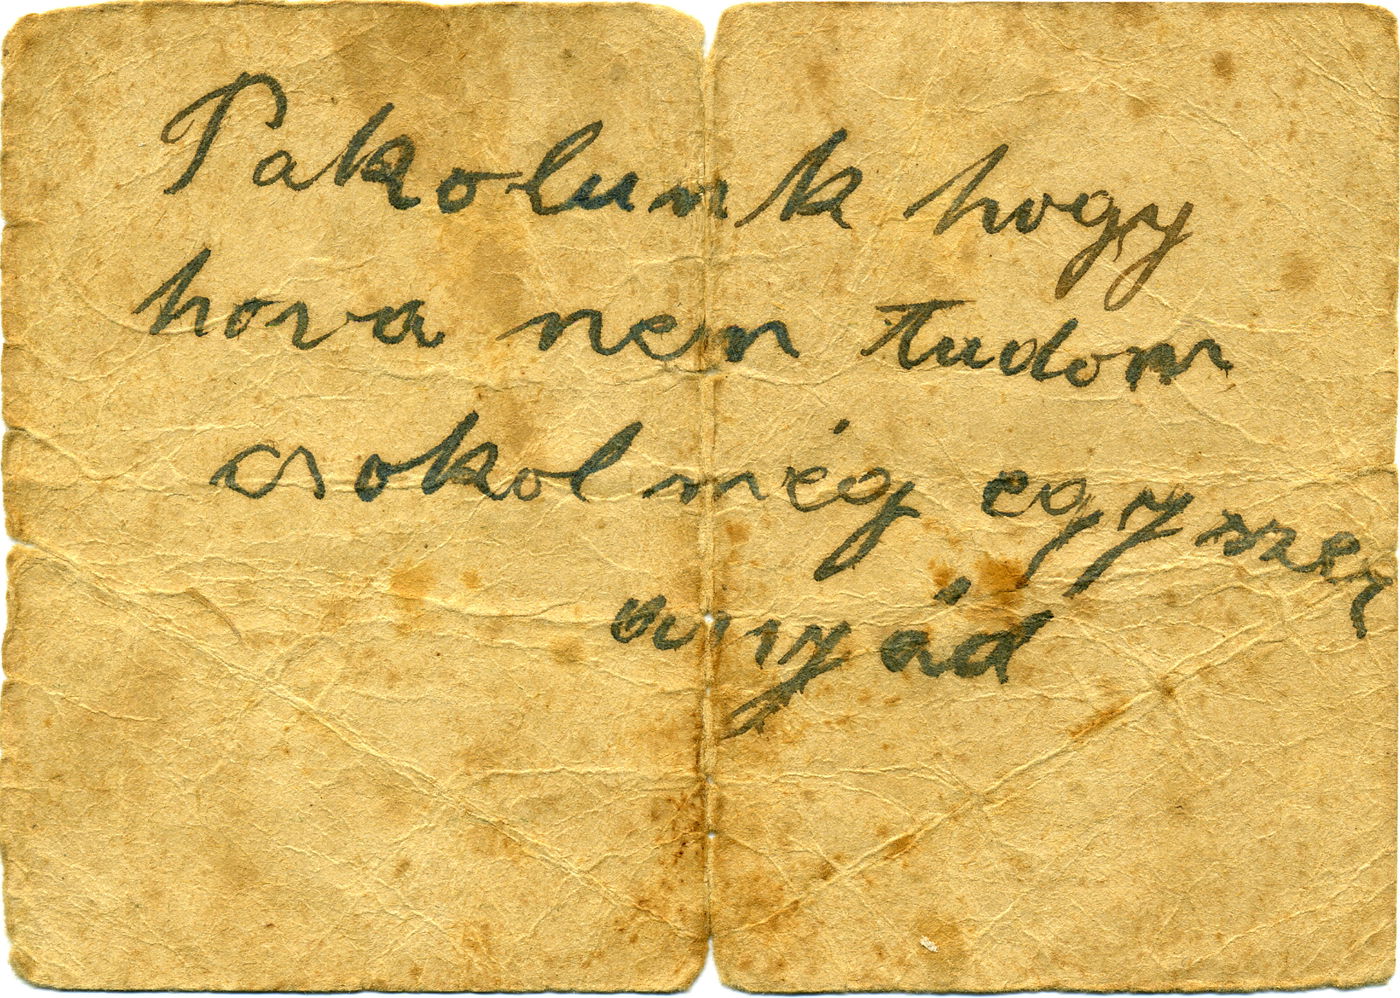 Pakolunk hogy
hova nem tudom
csokol még egyszer
anyád